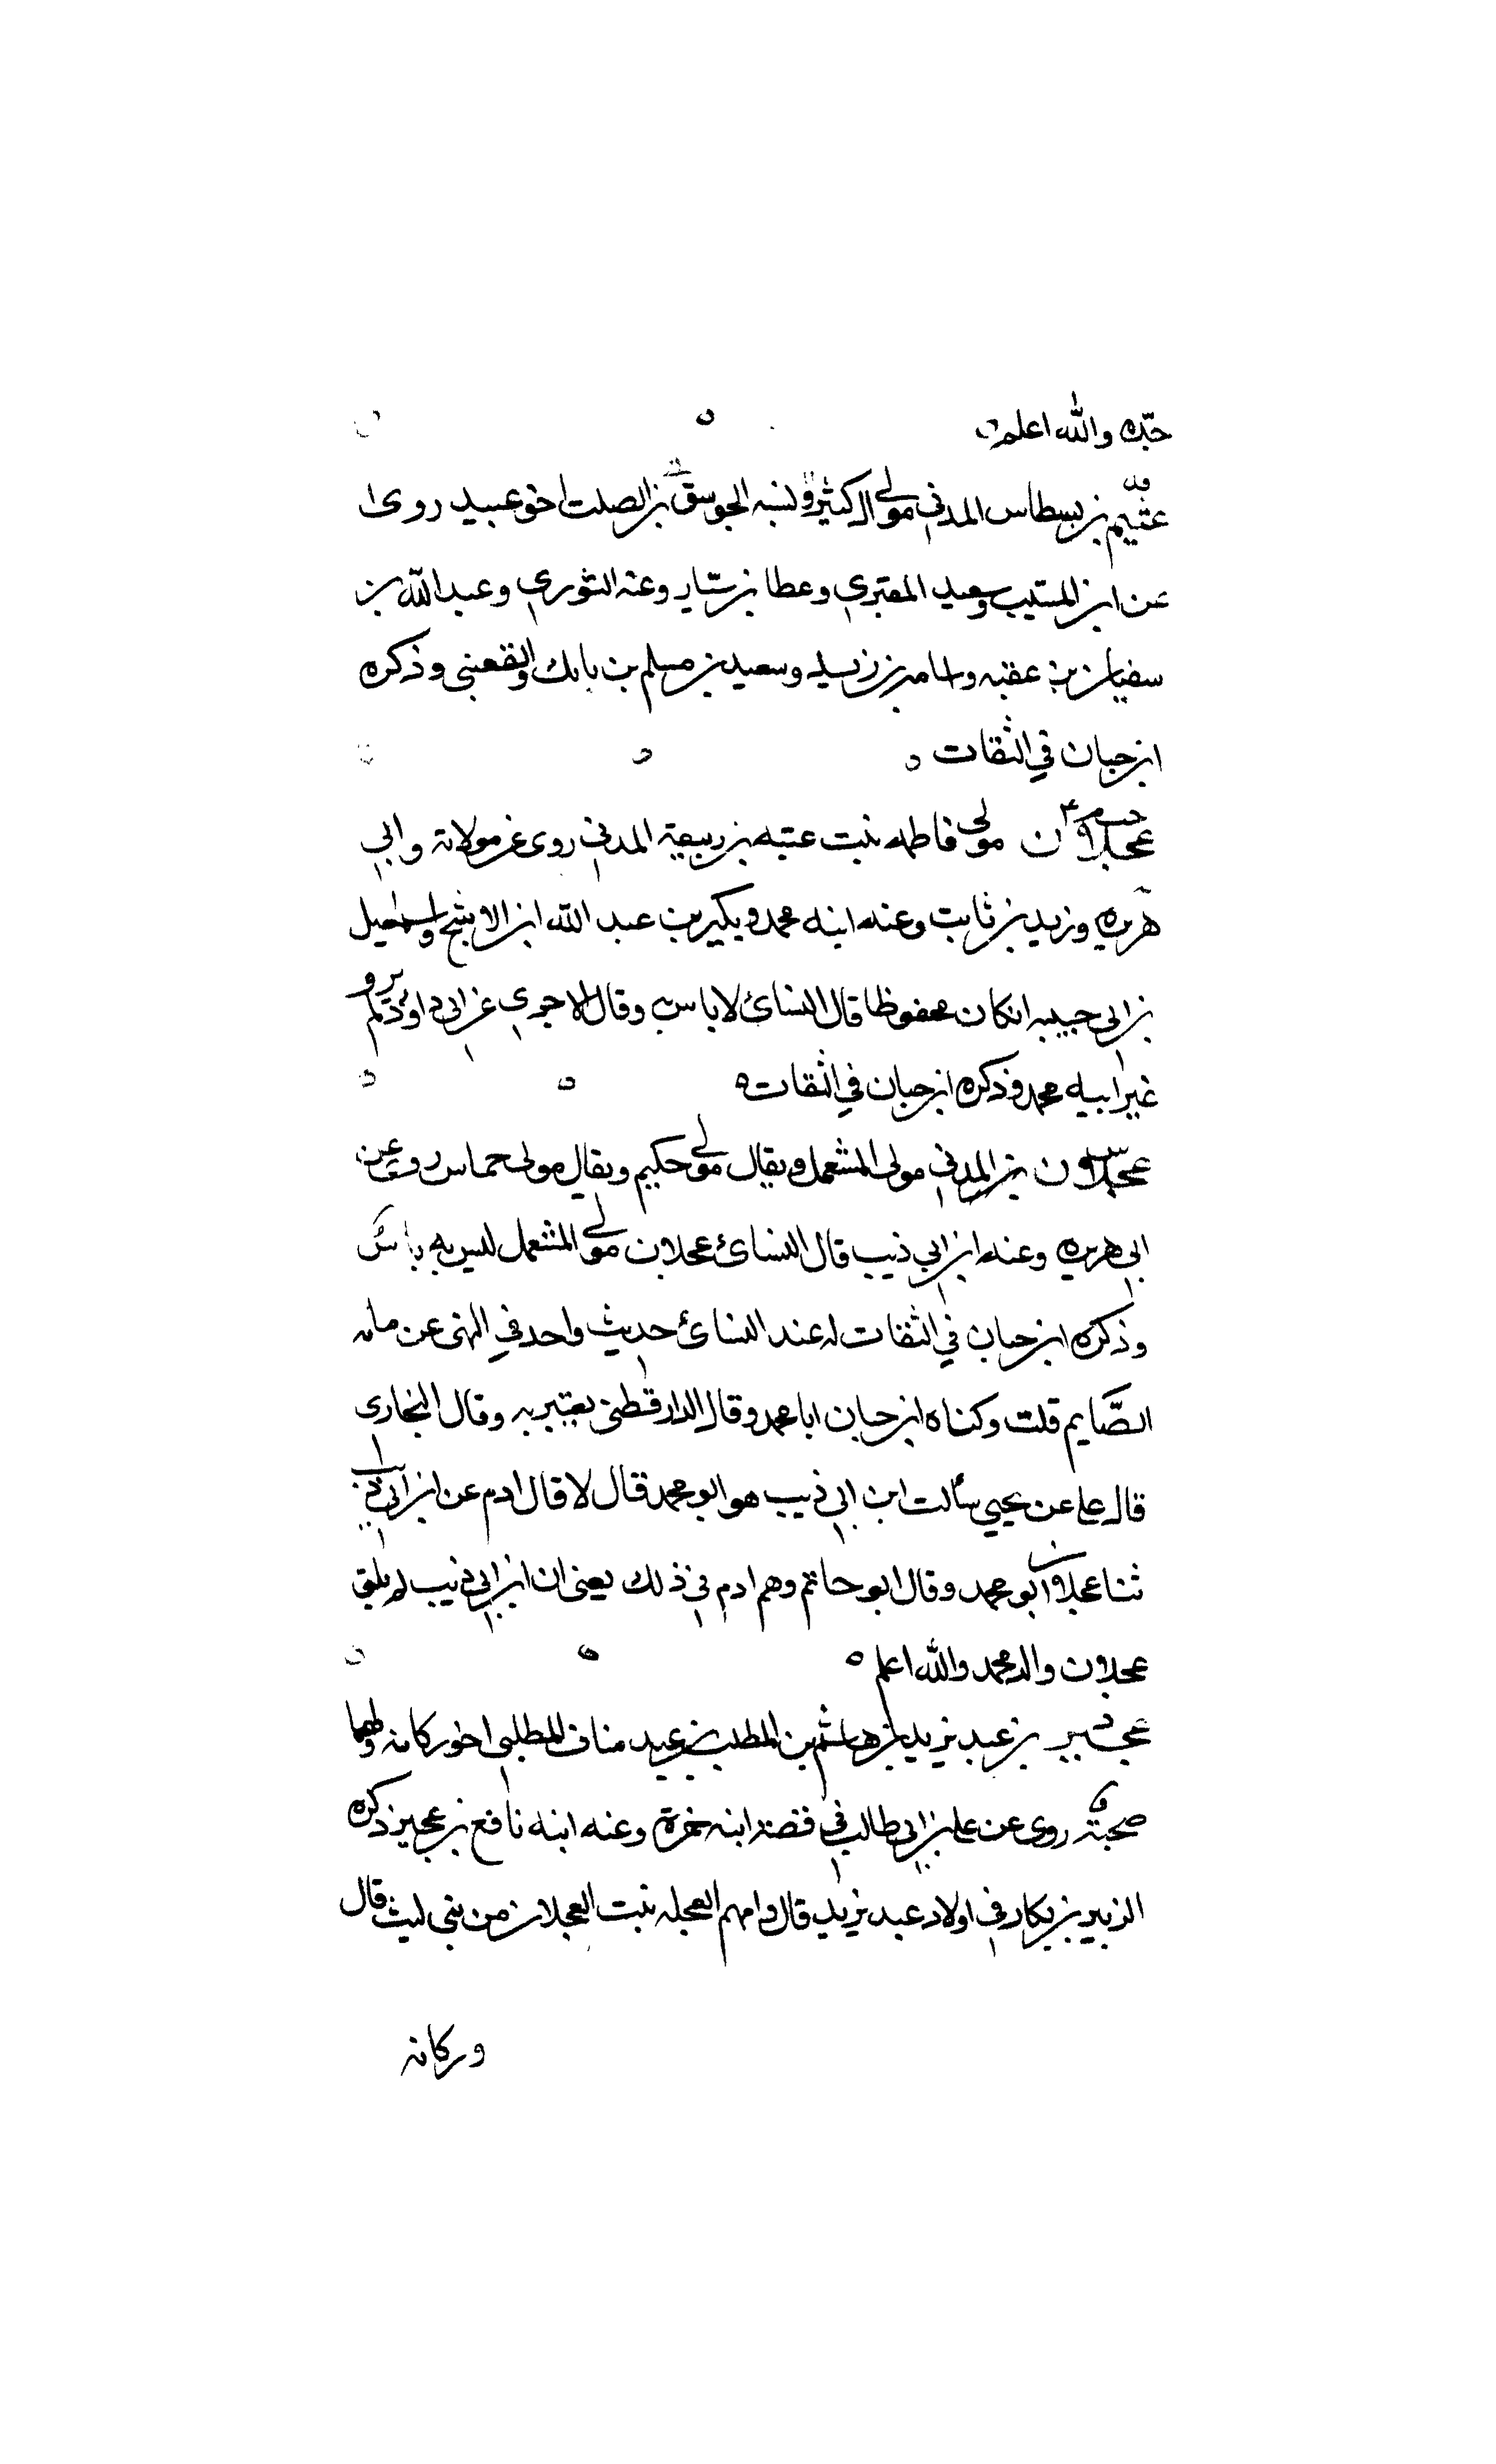 جده والله اعلم
عثيم بن بسطاس المدني مولى ال كثير ولنسبه الجوسق بن الصلت اخو عبيد روى
عن ابن المسيب وسعيد المقبري وعطا بن يسار وعنه الثوري وعبد الله بن
سفيان بن عقبه واسامه بن زيد وسعيد بن مسلم بن بابك والقعنبي وذكره
ابن حبان في الثقات
عجلان مولى فاطمه بنت عتبه بن ربيعة المدني روى عن مولاته وابي
هريره وزيد بن ثابت وعنه ابنه محمد وبكير بن عبد الله ابن الاشج واسماعيل
بن ابي حبيبه ان كان محفوظا قال النسائ لا باس به وقال الاجري عن ابي داود لم يرو
غير ابيه محمد وذكره ابن حبان في الثقات
عجلان بن المدني مولى المشمعل ويقال مولى حكيم ويقال مولى حماس روى عن
ابي هريره وعنه ابن ابي ذيب قال النسائ عجلان مولى المشمعل ليس به باس
وذكره ابن حبان في الثقات له عند النسائ حديث واحد في النهى عن
الصايم قلت وكناه ابن حبان ابا محمد وقال الدارقطني يعتبر به وقال البخارى
قال علي عن يحيي سألت ابن ابي ذيب هو ابو محمد قال لا قال ادم عن ابن ابي ذيب
ثنا عجلان ابو محمد وقال ابو حاتم وهم ادم في ذلك يعني ان ابن ابي ذيب لم يلق
عجلان والد محمد والله اعلم
عجير بن عبد يزيد بن هاشم بن المطلب بن عبد مناف المطلبي اخو ركانه ولهما
صحبة روى عن علي بن ابي طالب في قصة ابنه حمزة وعنه ابنه نافع بن عجير ذكره
الزبير بن بكار في اولاد عبد يزيد قال وامهم العجله بنت العجلان من بني ليث قال
وركانه